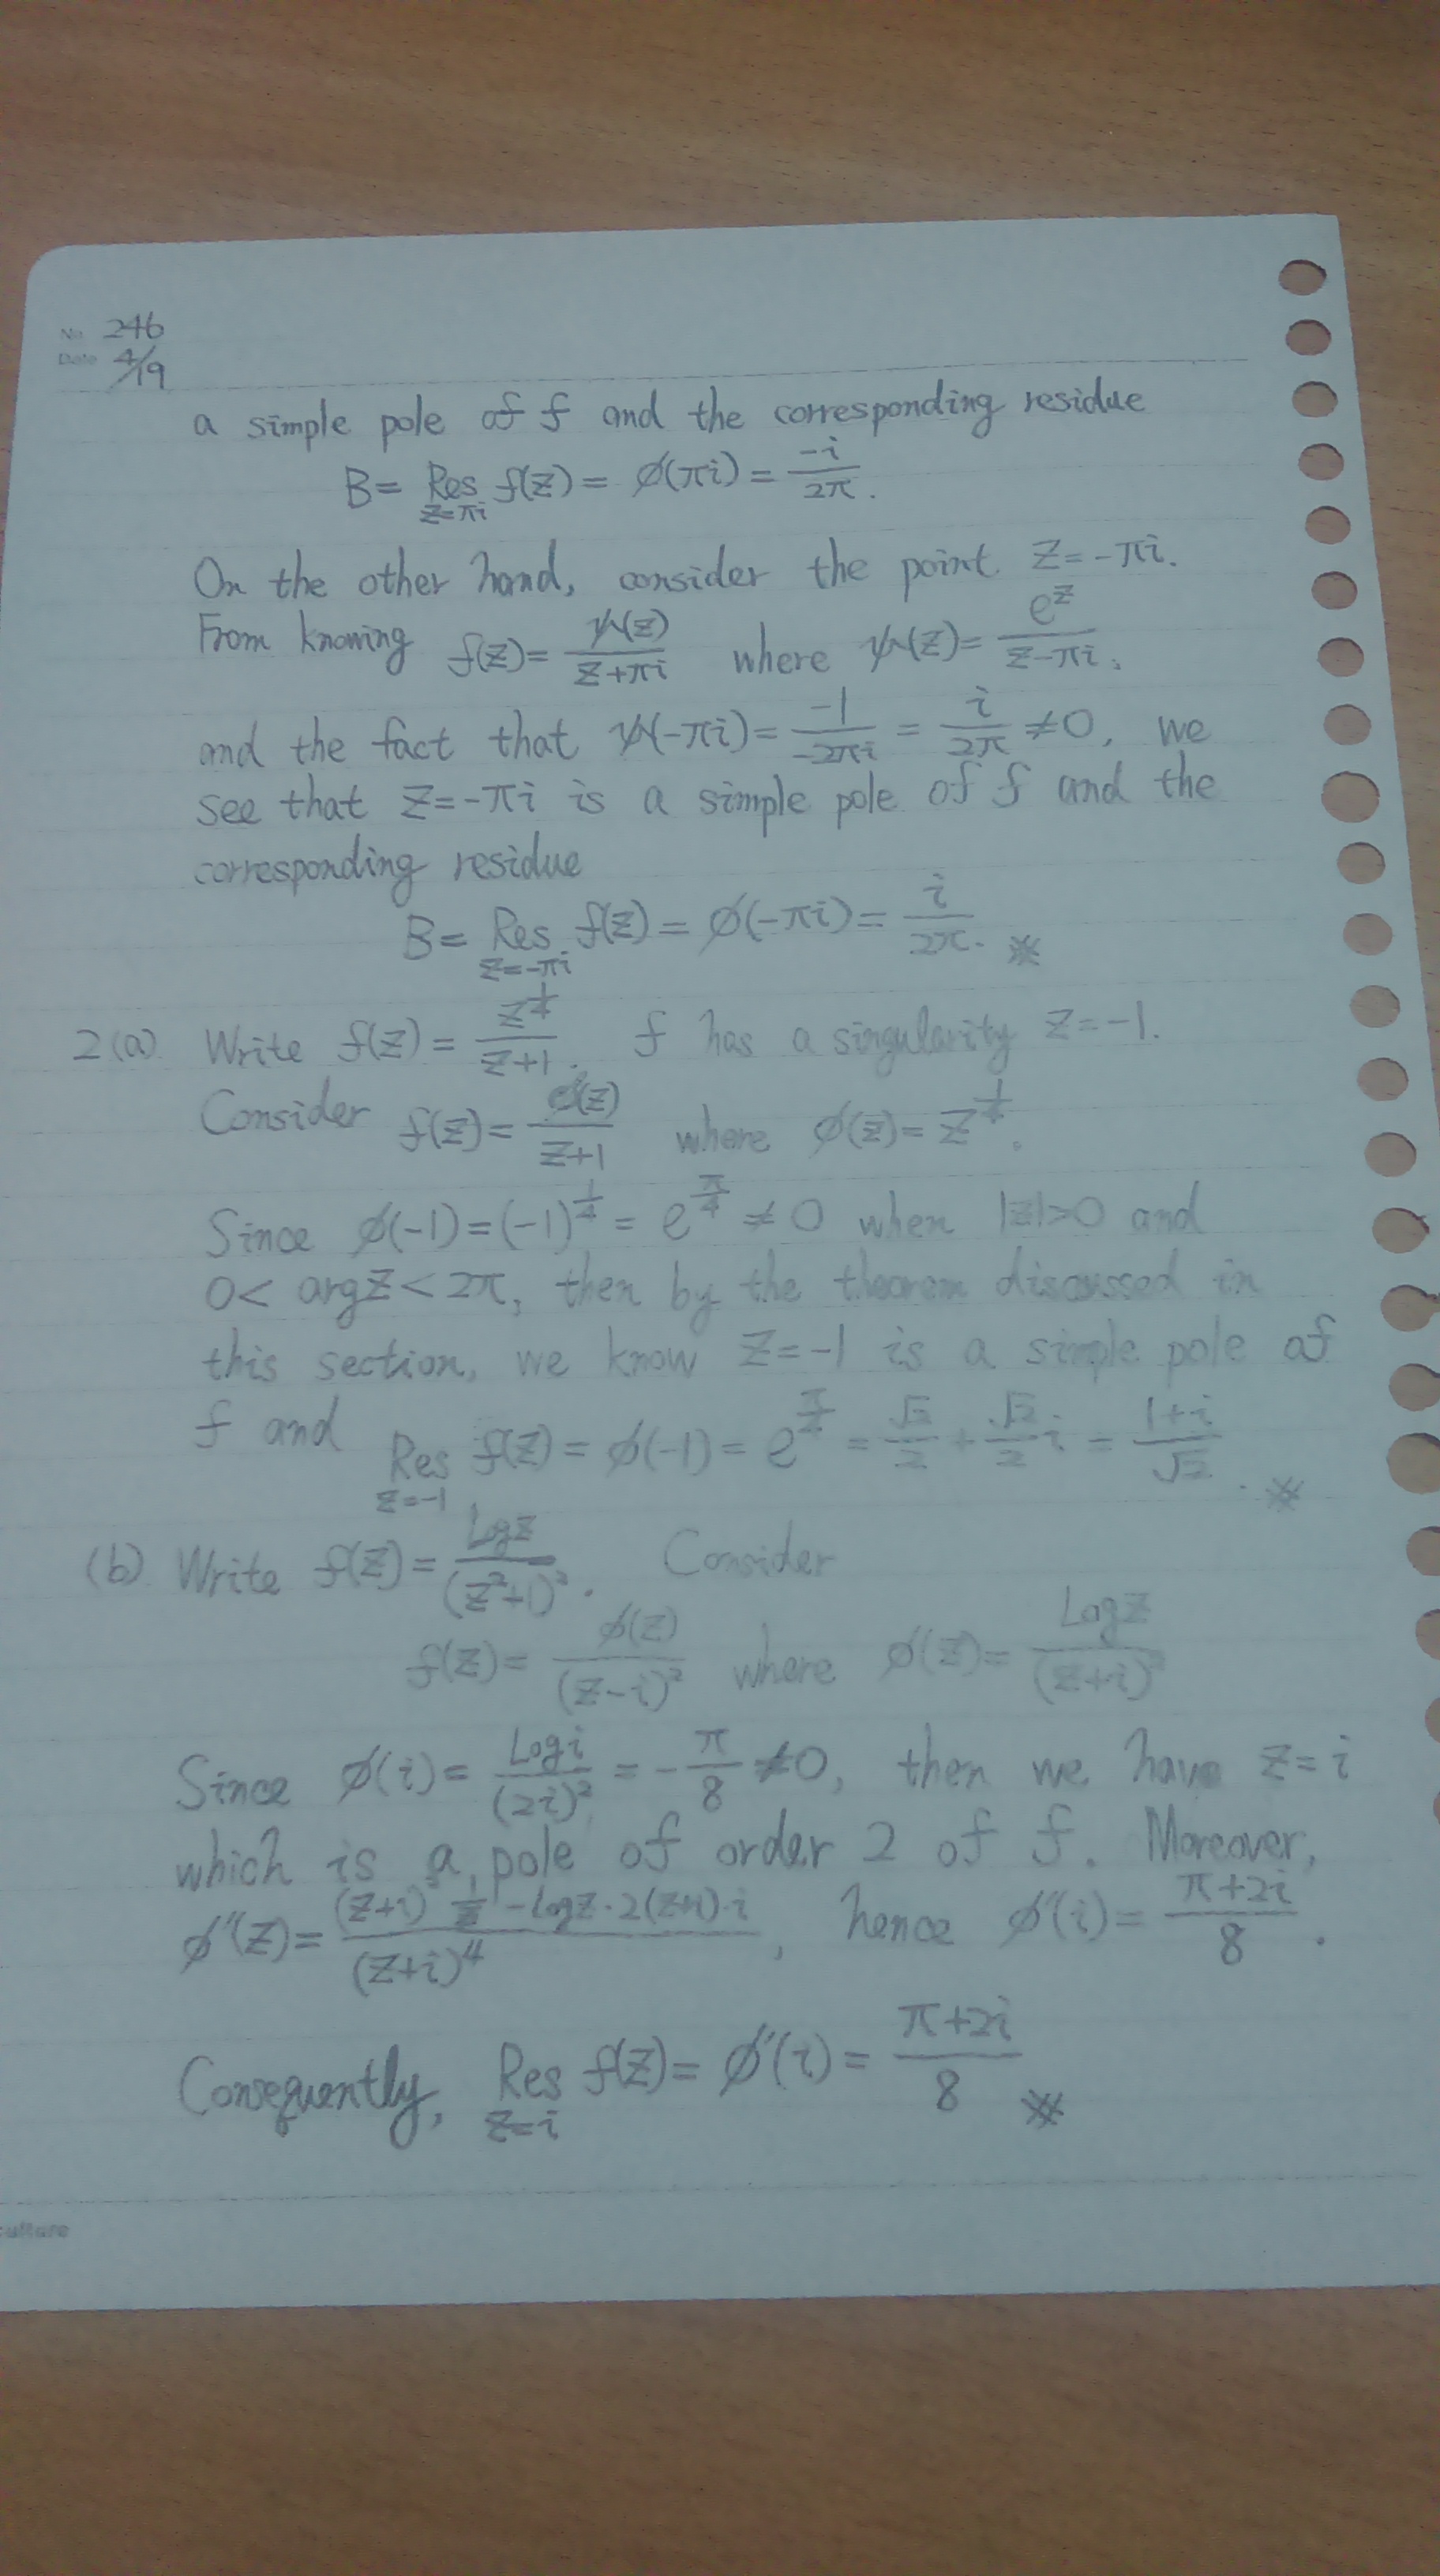 No. 246
Date 4/19
a simple pole of f and the corresponding residue
B = Res_{z=πi} f(z) = ϕ(πi) = -i/2π.
On the other hand, consider the point z = -πi.
From knowing f(z) = ψ(z)/(z+πi) where ψ(z) = e^z/(z-πi),
and the fact that ψ(-πi) = -1/(-2πi) = i/2π ≠ 0, we
see that z = -πi is a simple pole of f and the
corresponding residue
B = Res_{z=-πi} f(z) = ϕ(-πi) = i/2π. ※
2(a) Write f(z) = z^{1/4}/(z+1). f has a singularity z = -1.
Consider f(z) = ϕ(z)/(z+1) where ϕ(z) = z^{1/4}.
Since ϕ(-1) = (-1)^{1/4} = e^{π/4} ≠ 0 when |z|>0 and
0 < arg z < 2π, then by the theorem discussed in
this section, we know z = -1 is a simple pole of
f and Res_{z=-1} f(z) = ϕ(-1) = e^{π/4} = √2/2 + √2/2 i = (1+i)/√2. ※
(b) Write f(z) = Log z/(z²+1)². Consider
f(z) = ϕ(z)/(z-i)² where ϕ(z) = Log z/(z+i)²
Since ϕ(i) = Log i/(2i)² = -π/8 ≠ 0, then we have z = i
which is a pole of order 2 of f. Moreover,
ϕ'(z) = ((z+i)² 1/z - log z · 2(z+i) · i)/(z+i)⁴, hence ϕ'(i) = (π+2i)/8.
Consequently, Res_{z=i} f(z) = ϕ'(i) = (π+2i)/8 ※